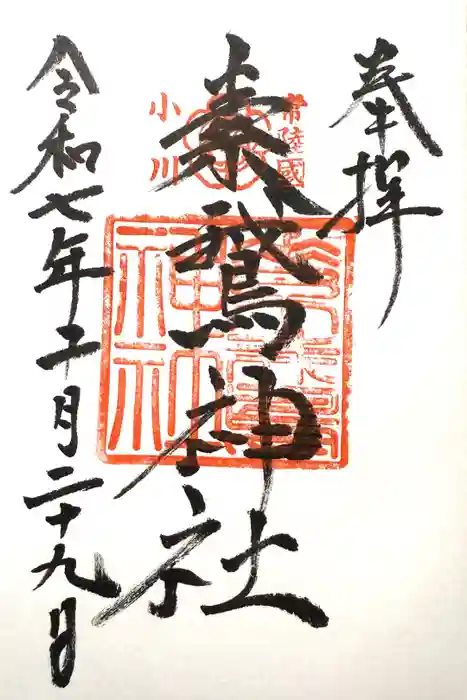 奉拝
常陸國
小川
素鵞神社
神社
令和七年
月二十九日